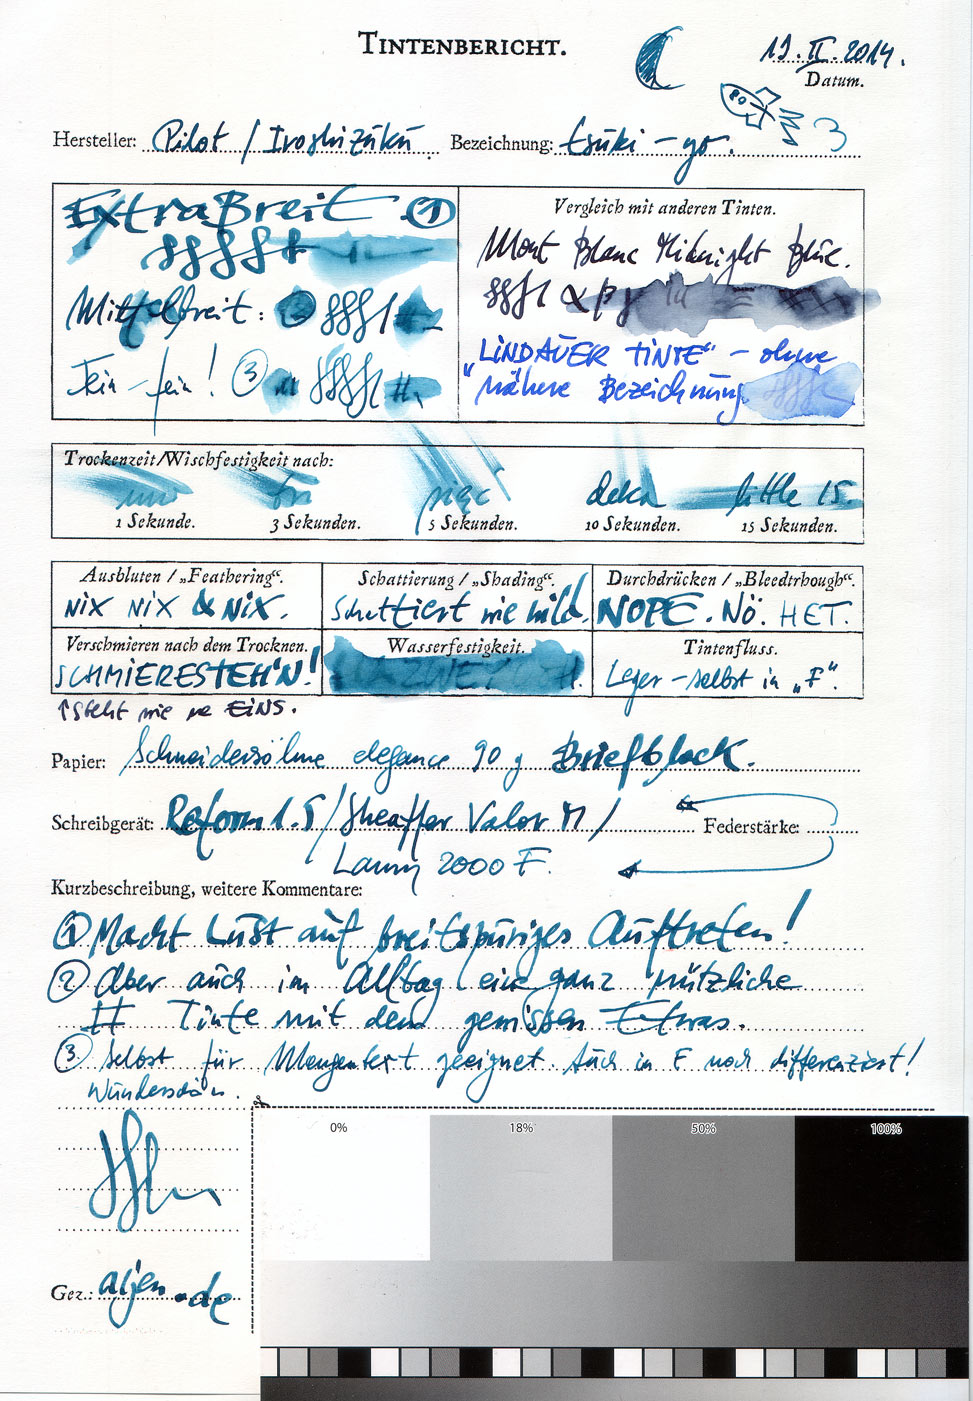 TINTENBERICHT.
19. II. 2014.
Datum.
Hersteller: Pilot / Iroshizuku. Bezeichnung: tsuki-yo.
3
ExtraBreit ①
Mittelbreit:
Fein-fein! ③
Vergleich mit anderen Tinten.
Mont Blanc Midnight Blue.
α β γ
„LINDAUER TINTE“ – ohne
nähere Bezeichnung
Trockenzeit/Wischfestigkeit nach:
little 15
1 Sekunde. 3 Sekunden. 5 Sekunden. 10 Sekunden. 15 Sekunden.
Ausbluten / „Feathering“. Schattierung / „Shading“. Durchdrücken / „Bleedtrhough“.
NIX NIX & NIX. Schattiert wie wild. NOPE. NÖ. HET.
Verschmieren nach dem Trocknen. Wasserfestigkeit. Tintenfluss.
SCHMIERESTEH'N! Leger – selbst in „F“.
↑ Steht wie ne EINS.
Papier: Schneidersöhne elegance 90 g Briefblock.
Schreibgerät: Reform 1.5 / Sheaffer Valor M / Federstärke:
Lamy 2000 F.
Kurzbeschreibung, weitere Kommentare:
① Macht Lust auf breitspuriges Auftreten!
② Aber auch im Alltag eine ganz nützliche
Tinte mit dem gewissen Etwas.
③ selbst für Mengentext geeignet. Auch in F noch differenziert!
Wunderschön.
0% 18% 50% 100%
Gez.: